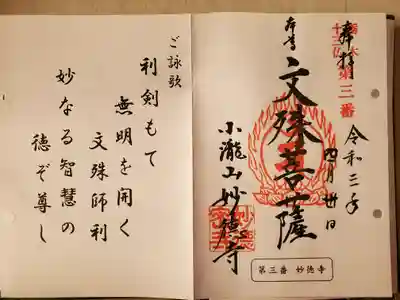 ご詠歌
利剣もて
無明を開く
文殊師利
妙なる智慧の
徳ぞ尊し
奉拝
十三仏
第三番
令和三年
四月廿日
本尊
文殊菩薩
小瀧山妙徳寺
第三番 妙徳寺